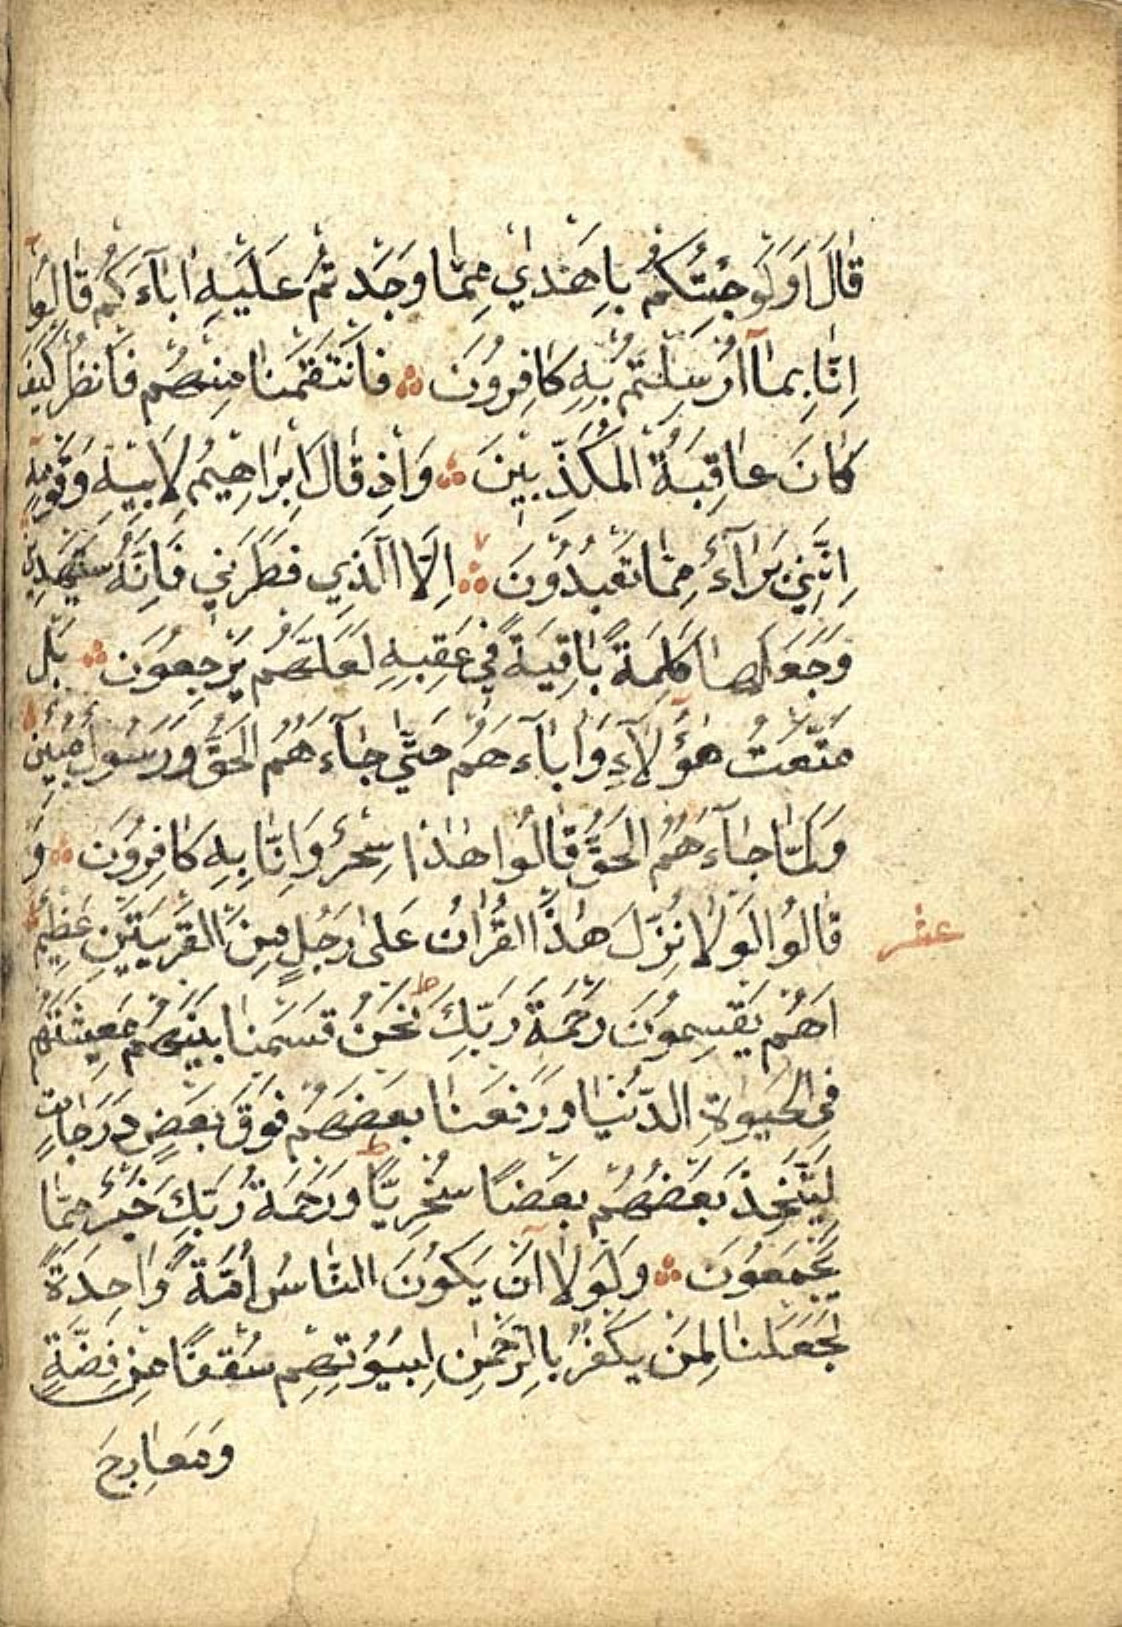 قَالَ اَوَلَوْ جِئْتُكُمْ بِاَهْدٰي مِمَّا وَجَدْتُمْ عَلَيْهِ اٰبَآءَكُمْ قَالُوٓا
اِنَّا بِمَآ اُرْسِلْتُمْ بِهِ كَافِرُونَ ؞ فَانْتَقَمْنَا مِنْهُمْ فَانْظُرْ كَيْفَ
كَانَ عَاقِبَةُ الْمُكَذِّبِينَ ؞ وَاِذْ قَالَ اِبْرَاهِيمُ لِاَبِيهِ وَقَوْمِهِٓ
اِنَّنِي بَرَآءٌ مِمَّا تَعْبُدُونَ ؞ اِلَّا الَّذِي فَطَرَنِي فَاِنَّهُ سَيَهْدِينِ
وَجَعَلَهَا كَلِمَةً بَاقِيَةً فِي عَقِبِهِ لَعَلَّهُمْ يَرْجِعُونَ ؞ بَلْ
مَتَّعْتُ هٰٓؤُلَآءِ وَاٰبَآءَهُمْ حَتّٰي جَآءَهُمُ الْحَقُّ وَرَسُولٌ مُبِينٌ
وَلَمَّا جَآءَهُمُ الْحَقُّ قَالُوا هٰذَا سِحْرٌ وَاِنَّا بِهِ كَافِرُونَ ؞ وَ
قَالُوا لَوْلَا نُزِّلَ هٰذَا الْقُرْاٰنُ عَلٰي رَجُلٍ مِنَ الْقَرْيَتَيْنِ عَظِيمٍ ؞
عشر
اَهُمْ يَقْسِمُونَ رَحْمَةَ رَبِّكَ ط نَحْنُ قَسَمْنَا بَيْنَهُمْ مَعِيشَتَهُمْ
فِي الْحَيٰوةِ الدُّنْيَا وَرَفَعْنَا بَعْضَهُمْ فَوْقَ بَعْضٍ دَرَجَاتٍ
لِيَتَّخِذَ بَعْضُهُمْ بَعْضًا سُخْرِيًّا ط وَرَحْمَةُ رَبِّكَ خَيْرٌ مِمَّا
يَجْمَعُونَ ؞ وَلَوْلَآ اَنْ يَكُونَ النَّاسُ اُمَّةً وَاحِدَةً
لَجَعَلْنَا لِمَنْ يَكْفُرُ بِالرَّحْمٰنِ لِبُيُوتِهِمْ سُقُفًا مِنْ فِضَّةٍ
وَمَعَارِجَ